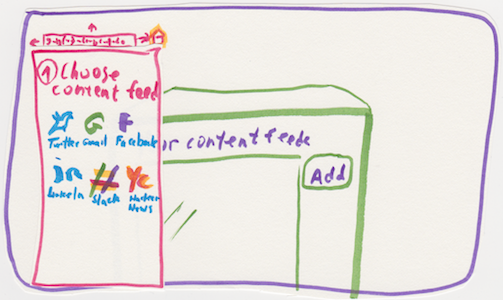 1 Choose
content feed
G F
Twitter Gmail Facebook
in Yc
LinkeIn Slack Hacker
News
or content feeds
Add